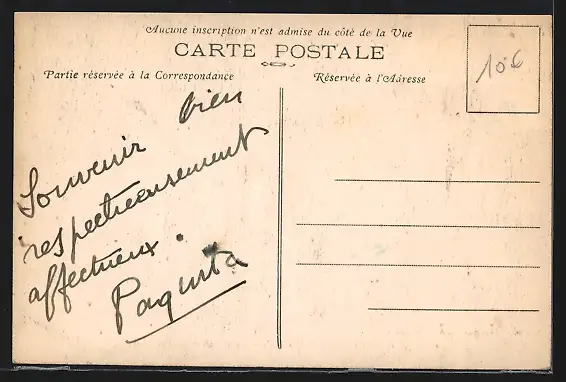 Aucune inscription n'est admise du côté de la Vue
CARTE POSTALE
Partie réservée à la Correspondance
Réservée à l'Adresse
10€
Souvenir bien
respectueusement
affectueux.
Paquita